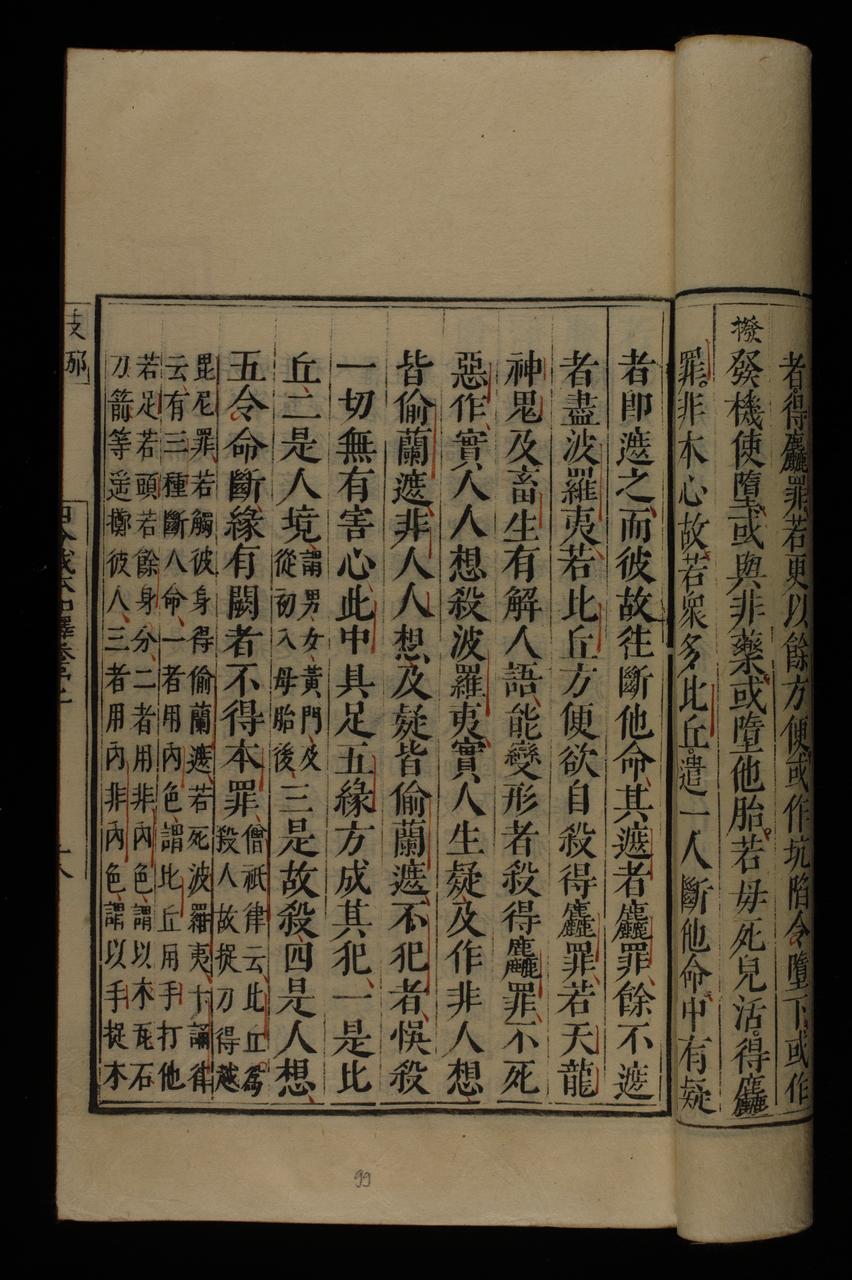 者得麤罪若更以餘方便或作坑陷令墮下或作
撥
發機使墮或與非藥或墮他胎若母死兒活得麤
罪非木心故若衆多比丘遣一人斷他命中有疑
者卽遮之而彼故往斷他命其遮者麤罪餘不遮
者盡波羅夷若比丘方便欲自殺得麤罪若天龍
神鬼及畜生有解人語能變形者殺得麤罪不死
惡作實人人想殺波羅夷實人生疑及作非人想
皆偷蘭遮非人人想及疑皆偷蘭遮不犯者悞殺
一切無有害心此中具足五緣方成其犯一是比
丘二是人境謂男女黃門及
從初入母胎後三是故殺四是人想
五令命斷緣有闕者不得本罪僧祇律云比丘爲
殺人故捉刀得越
毘尼罪若觸彼身得偷蘭遮若死波羅夷十誦律
云有三種斷人命一者用內色謂比丘用手打他
若足若頭若餘身分二者用非內色謂以木瓦石
刀箭等遥擲彼人三者用內非內色謂以手捉木
支那
四分戒本如釋卷二
十八
99